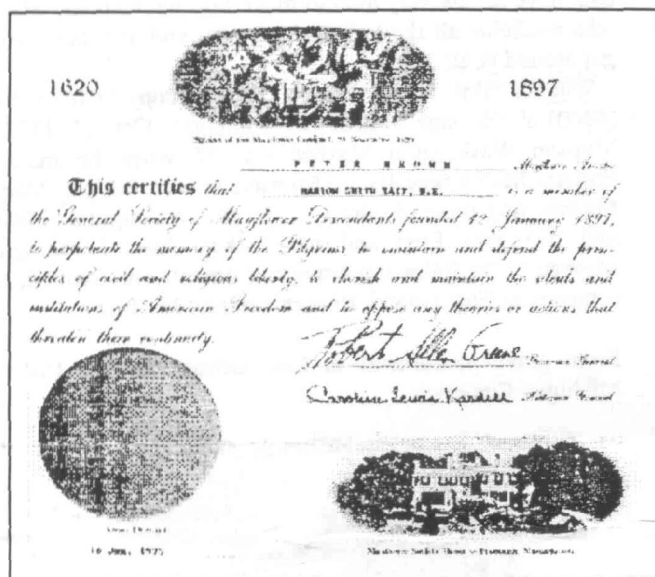 1620 1897
PETER BROWN
This certifies that MARION SMITH is a member of
the General Society of Mayflower Descendants founded 12 January 1897,
to perpetuate the memory of the Pilgrims to maintain and defend the prin-
ciples of civil and religious liberty, to cherish and maintain the ideals and
institutions of American Freedom and to oppose any theories or actions that
threaten their continuity.
Robert Allen Greene Governor General
Caroline Lewis Kardell Historian General
Mayflower Society House Plymouth, Massachusetts